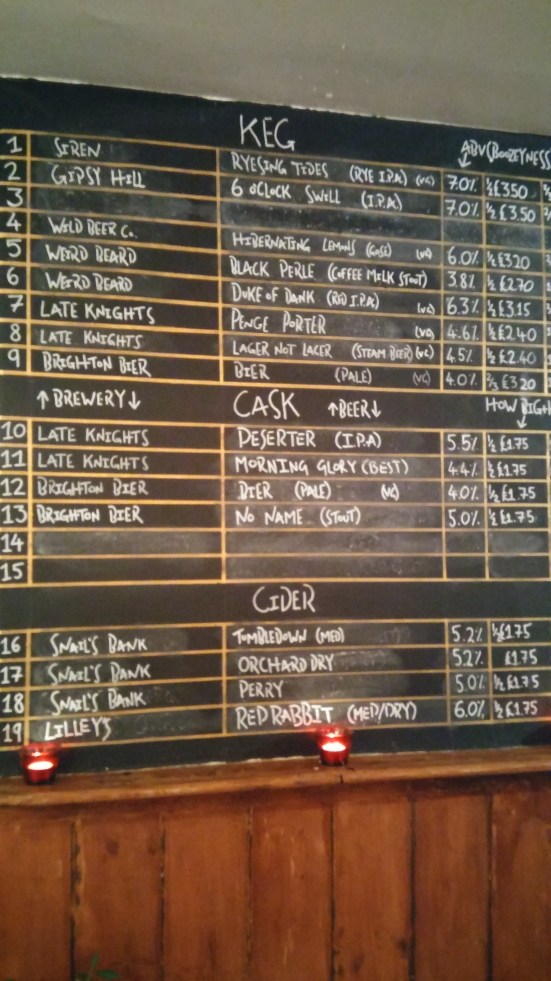 KEG ABV (BOOZEYNESS
1 SIREN RYESING TIDES (RYE I.P.A) (VG) 7.0% ½ £3.50
2 GIPSY HILL 6 O'CLOCK SWILL (I.P.A) 7.0% ½ £3.50
3
4 WILD BEER Co. HIBERNATING LEMONS (GOSE) (VG) 6.0% ½ £3.20
5 WEIRD BEARD BLACK PERLE (COFFEE MILK STOUT) 3.8% ½ £2.70
6 WEIRD BEARD DUKE OF DANK (RED I.P.A) (VG) 6.3% ½ £3.15
7 LATE KNIGHTS PENGE PORTER (VG) 4.6% ½ £2.40
8 LATE KNIGHTS LAGER NOT LAGER (STEAM BEER) (VG) 4.5% ½ £2.40
9 BRIGHTON BIER BIER (PALE) (VG) 4.0% ⅔ £3.20
↑BREWERY↓ CASK ↑BEER↓ HOW BIG
10 LATE KNIGHTS DESERTER (I.P.A) 5.5% ½ £1.75
11 LATE KNIGHTS MORNING GLORY (BEST) 4.4% ½ £1.75
12 BRIGHTON BIER BIER (PALE) (VG) 4.0% ½ £1.75
13 BRIGHTON BIER NO NAME (STOUT) 5.0% ½ £1.75
14
15
CIDER
16 SNAIL'S BANK TUMBLEDOWN (MED) 5.2% ½ £1.75
17 SNAIL'S BANK ORCHARD DRY 5.2% £1.75
18 SNAIL'S BANK PERRY 5.0% ½ £1.75
19 LILLEY'S RED RABBIT (MED/DRY) 6.0% ½ £1.75